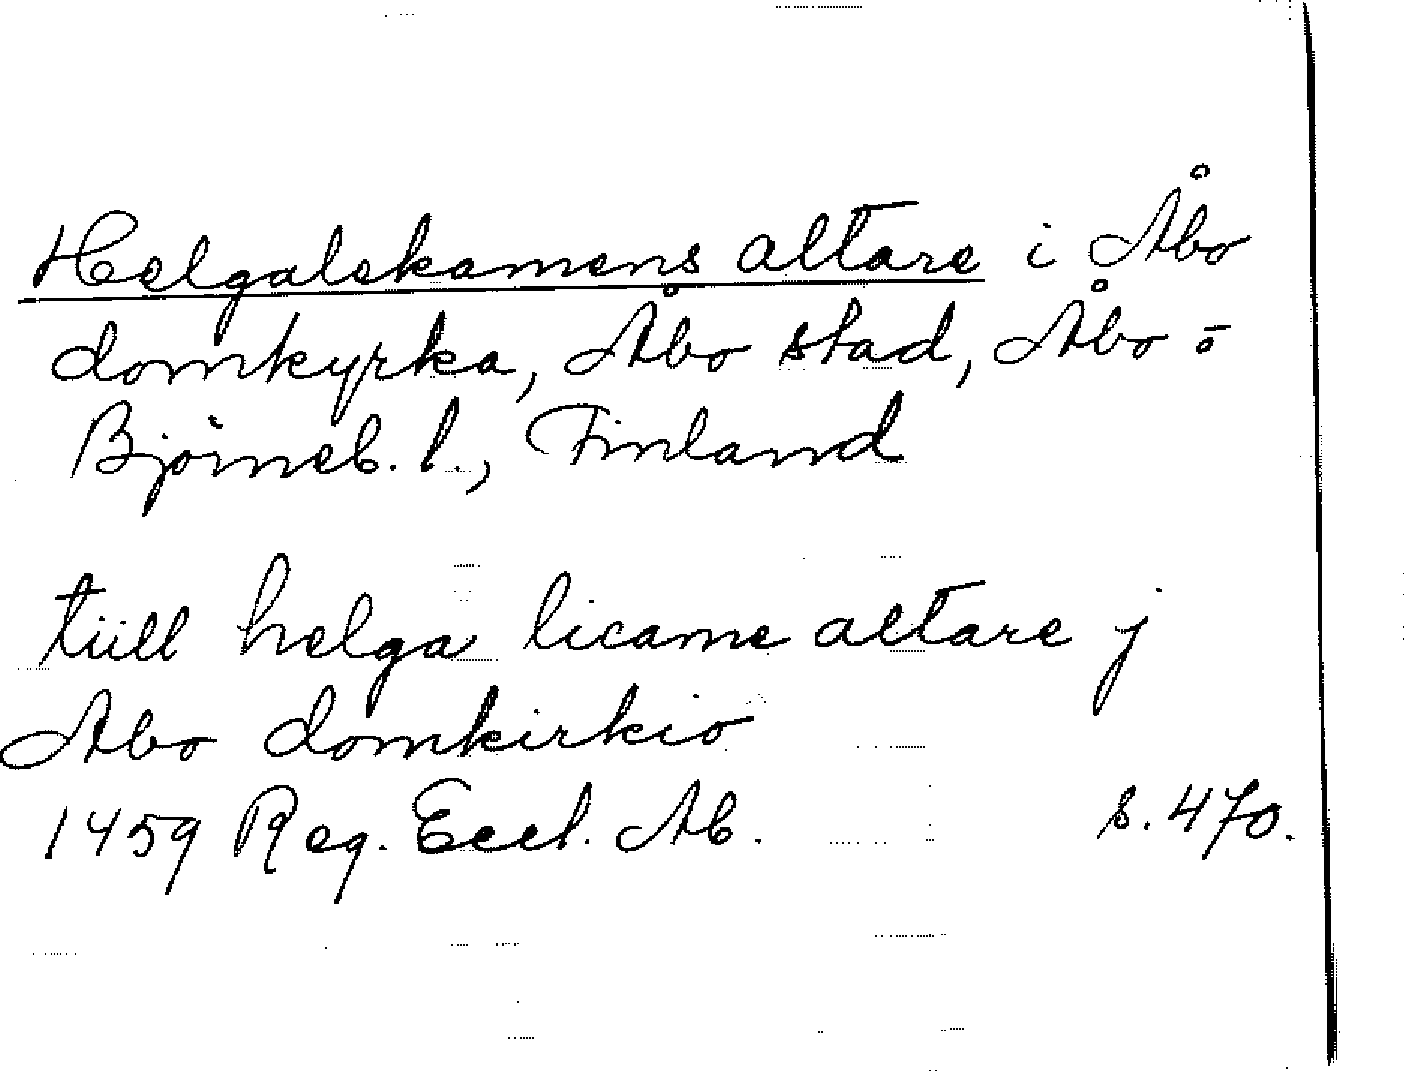 Helgalekamens altare i Åbo
domkyrka, Åbo stad, Åbo o
Björneb. l., Finland
tiill helga licame altare j
Abo domkirkio
1459 Reg. Eccl. Ab. s. 470.